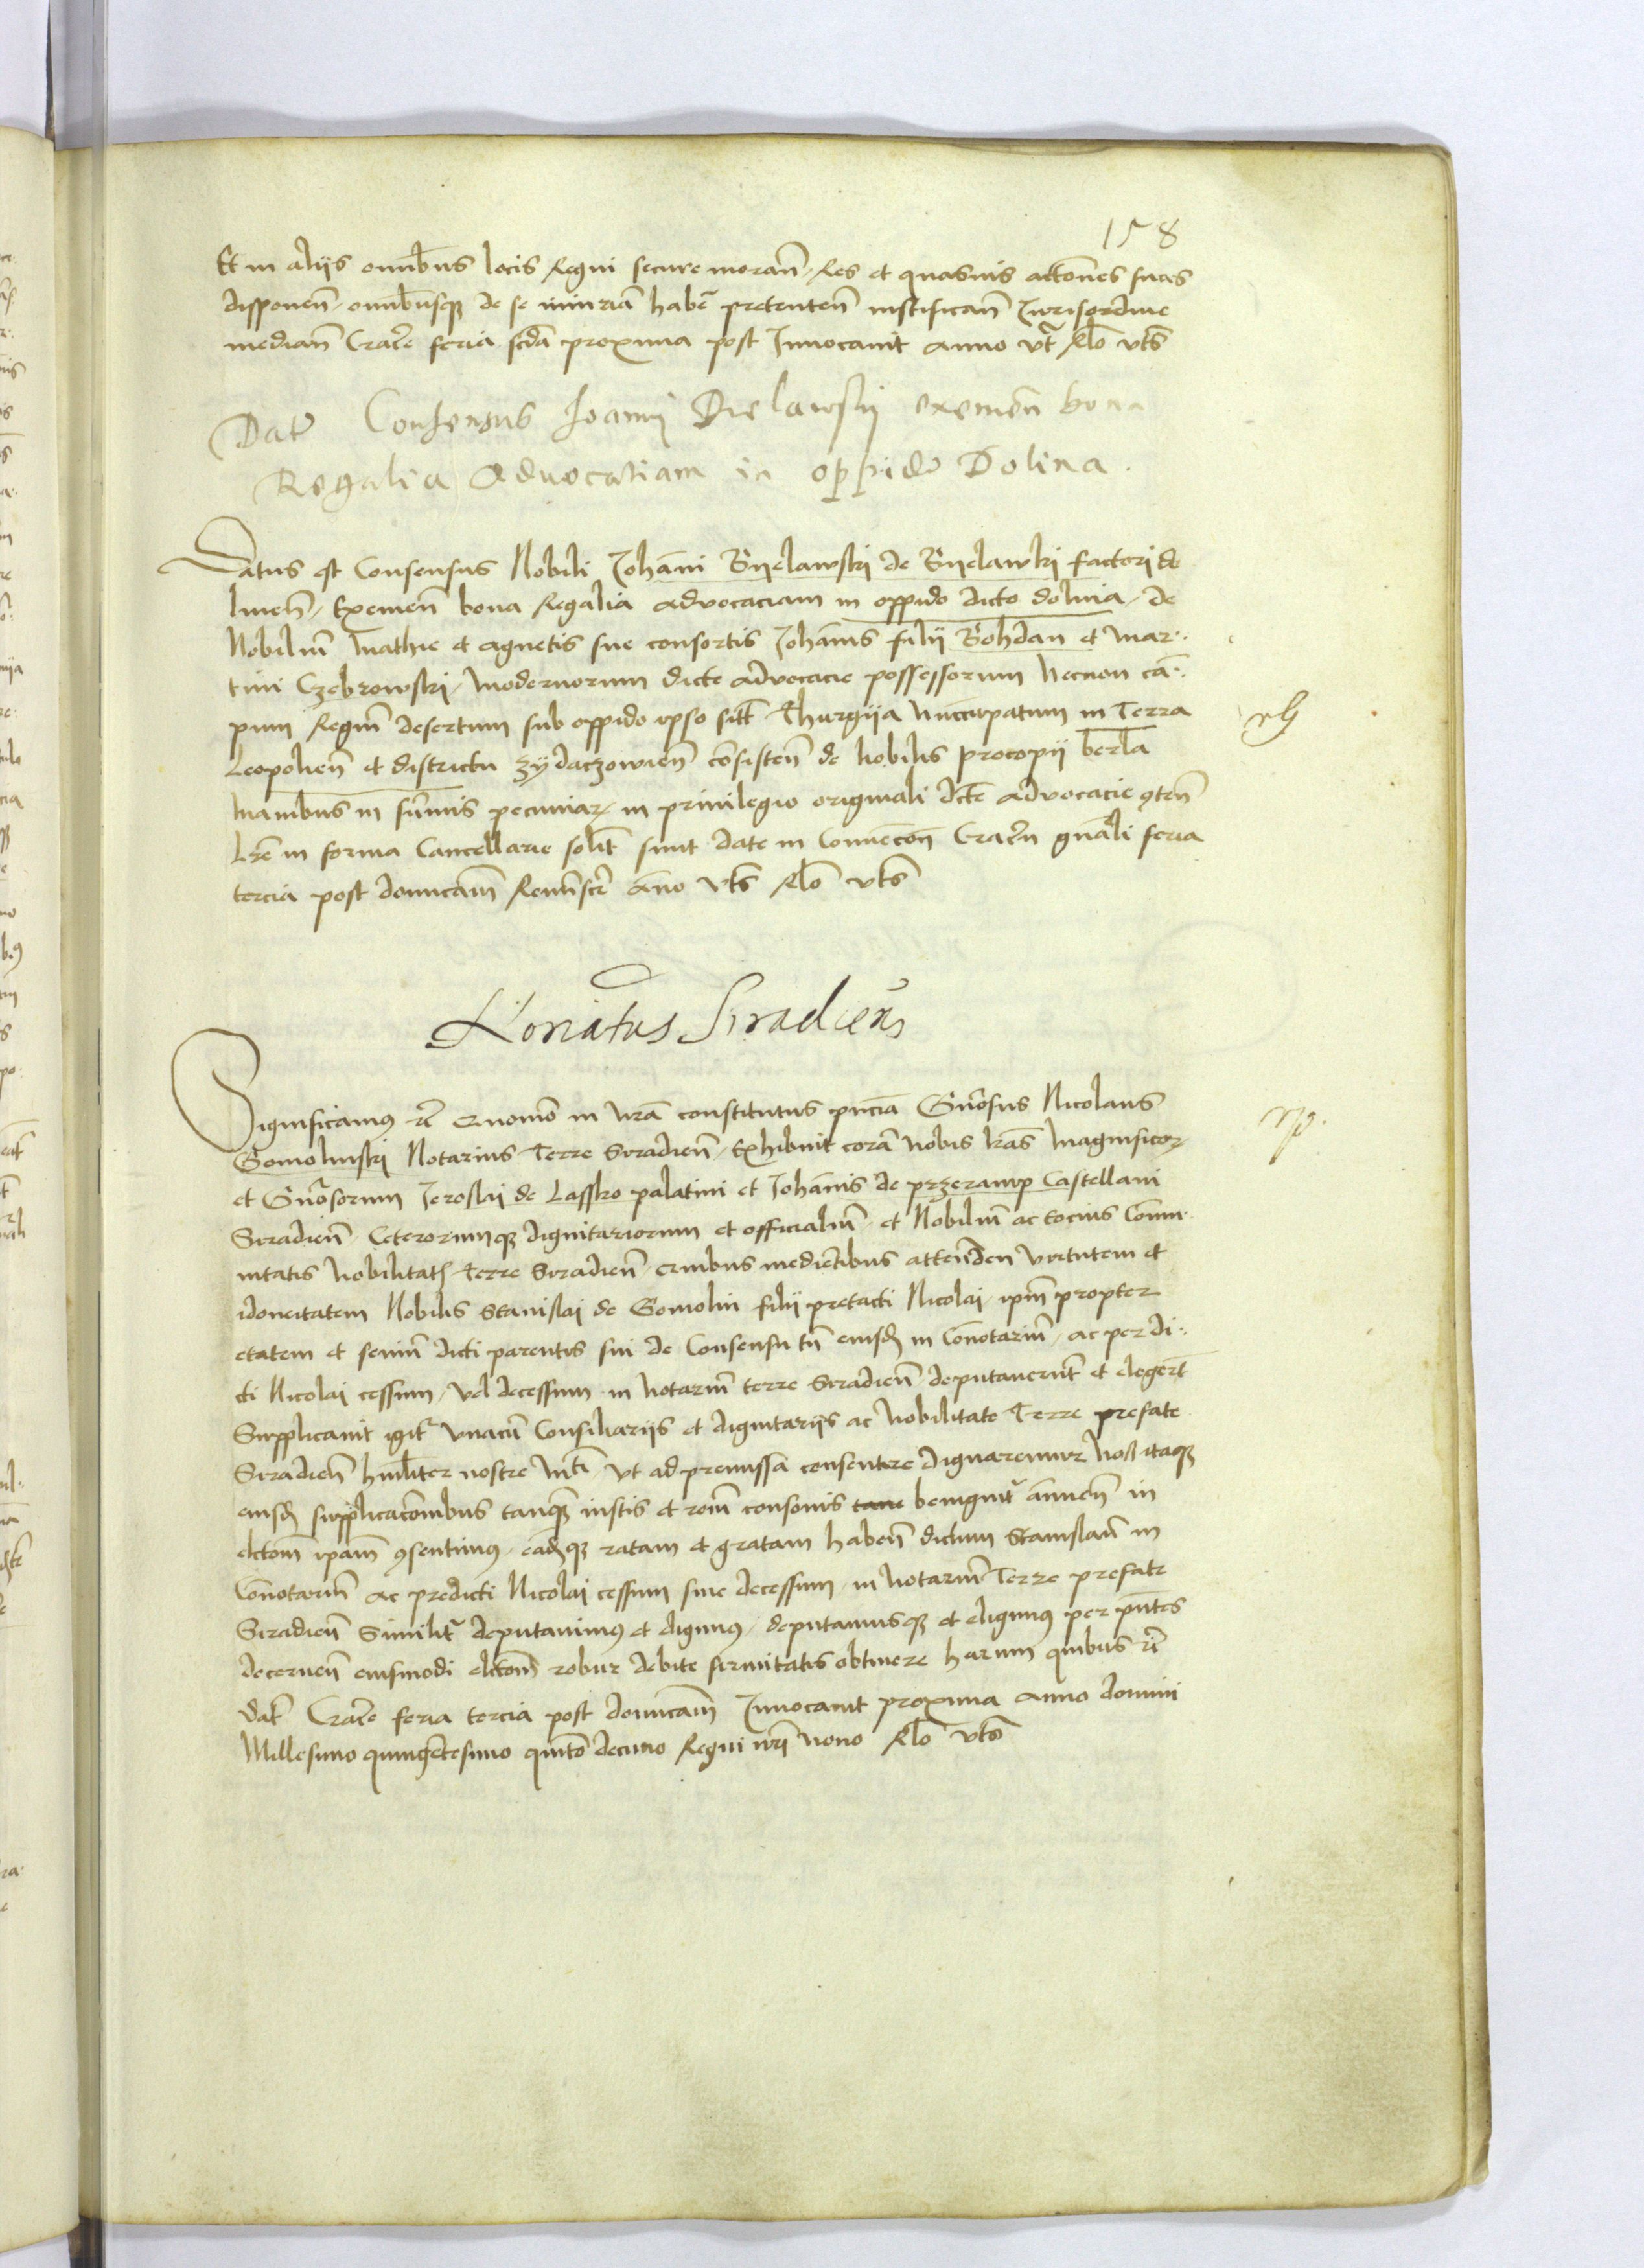 158
Et in aliis omnibus locis Regni secure moran̄ Res et quasuis actōnes suas
disponen̄ omnibusqꝫ de se iniuriā habē pretenten̄ iustifican̄ Jurisordine
median̄ Crac̄e feria scd̄a proxima post Inuocauit anno vt̄ Rō vts̄
Datr̄ Consensus Joanni Bielawski eximen̄ bona
Regalia Advocatiam in oppido Dolina.
Datus est Consensus Nobili Johānni Byelawski de Byelawki factori do
linen̄ Eximen̄ bona Regalia advocaciam in oppido dicto dolina de
Nobiliū Mathie et Agnetis sue consortis Johānis filii Bohdan et Mar:
tini Czebrowski modernorum dicte advocacie possessorum Necnon cā:
pum Regiū desertum sub oppido ipso sitū Thurzya nūccupatum in Terra
Leopolien̄ et districtu zydaczowien̄ cōsisten̄ de Nobilis procopii berla
Manibus in sūmis pecuniarꝫ in priuilegio originali dc̄te advocacie ꝯten̄
Lr̄e in forma Cancellarie solit̄ sunt date in Conuēcōn Cracn̄ gn̄ali feria
tercia post dominicam̄ Reminiscr̄e āno vts̄ Rō vts̄
Notariatus Siradien̄
Significamus rc̄ Quomō in nr̄a constitutus pn̄cia Gn̄rosus Nicolaus
Gomolinski Notarius Terre Siradien̄ Exhibuit corā nobis lr̄as Magnificorꝫ
et Gn̄rosorum Jeroslai de Lassko palatini et Johānis de przeramp Castellani
Siradien̄ Ceterorumqꝫ dignitariorum et officialiū et Nobiliū ac tocius Comu:
nitatis Nobilitatꝭ Terre Siradien̄ Quibus mediētibus attenden̄ virtutem et
idoneitatem Nobilis Stanislai de Gomolin filii pretacti Nicolai ipm̄ propter
etatem et seniū dicti parentis sui de Consensu tn̄ eiusdꝫ in Conotariū ac per di:
cti Nicolai cessum vel decessum in Notariū terre Siradien̄ deputauerūt et elegerūt
Supplicauit igit̄ vnacū Consiliariis et dignitariis ac Nobilitate Terre prefate
Siradien̄ humiliter nostre Mti̅ vt ad premissa consentire dignaremur Nos itaqꝫ
eiusdꝫ supplicacōnibus tanqꝫ iustis et roni̅ consonis benignit̄ annuen̄ in
elctōem ipam̄ ꝯsentimus eādqꝫ ratam et gratam haben̄ dictum Stanislaū in
Conotariū ac predicti Nicolai cessum siue decessum in Notariū Terre prefate
Siradien̄ Similit̄ deputauimus et eligimus deputamusqꝫ et eligimus per pn̄tes
decernen̄ eiusmodi elctōem robur debite firmitatis obtinere harum quibus rc̄
dat̄ Crac̄e feria tercia post dominicam̄ Inuocauit proxima anno domini
Millesimo quingētesimo quinto decimo Regni nr̄i nono Rō vts̄